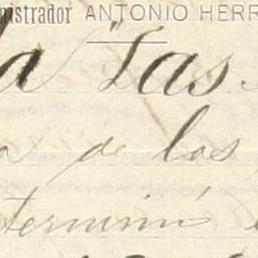 nistrador ANTONIO HERR
la "Las
de los
terminó